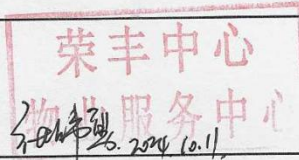 荣丰中心
物业服务中心
2024.10.11